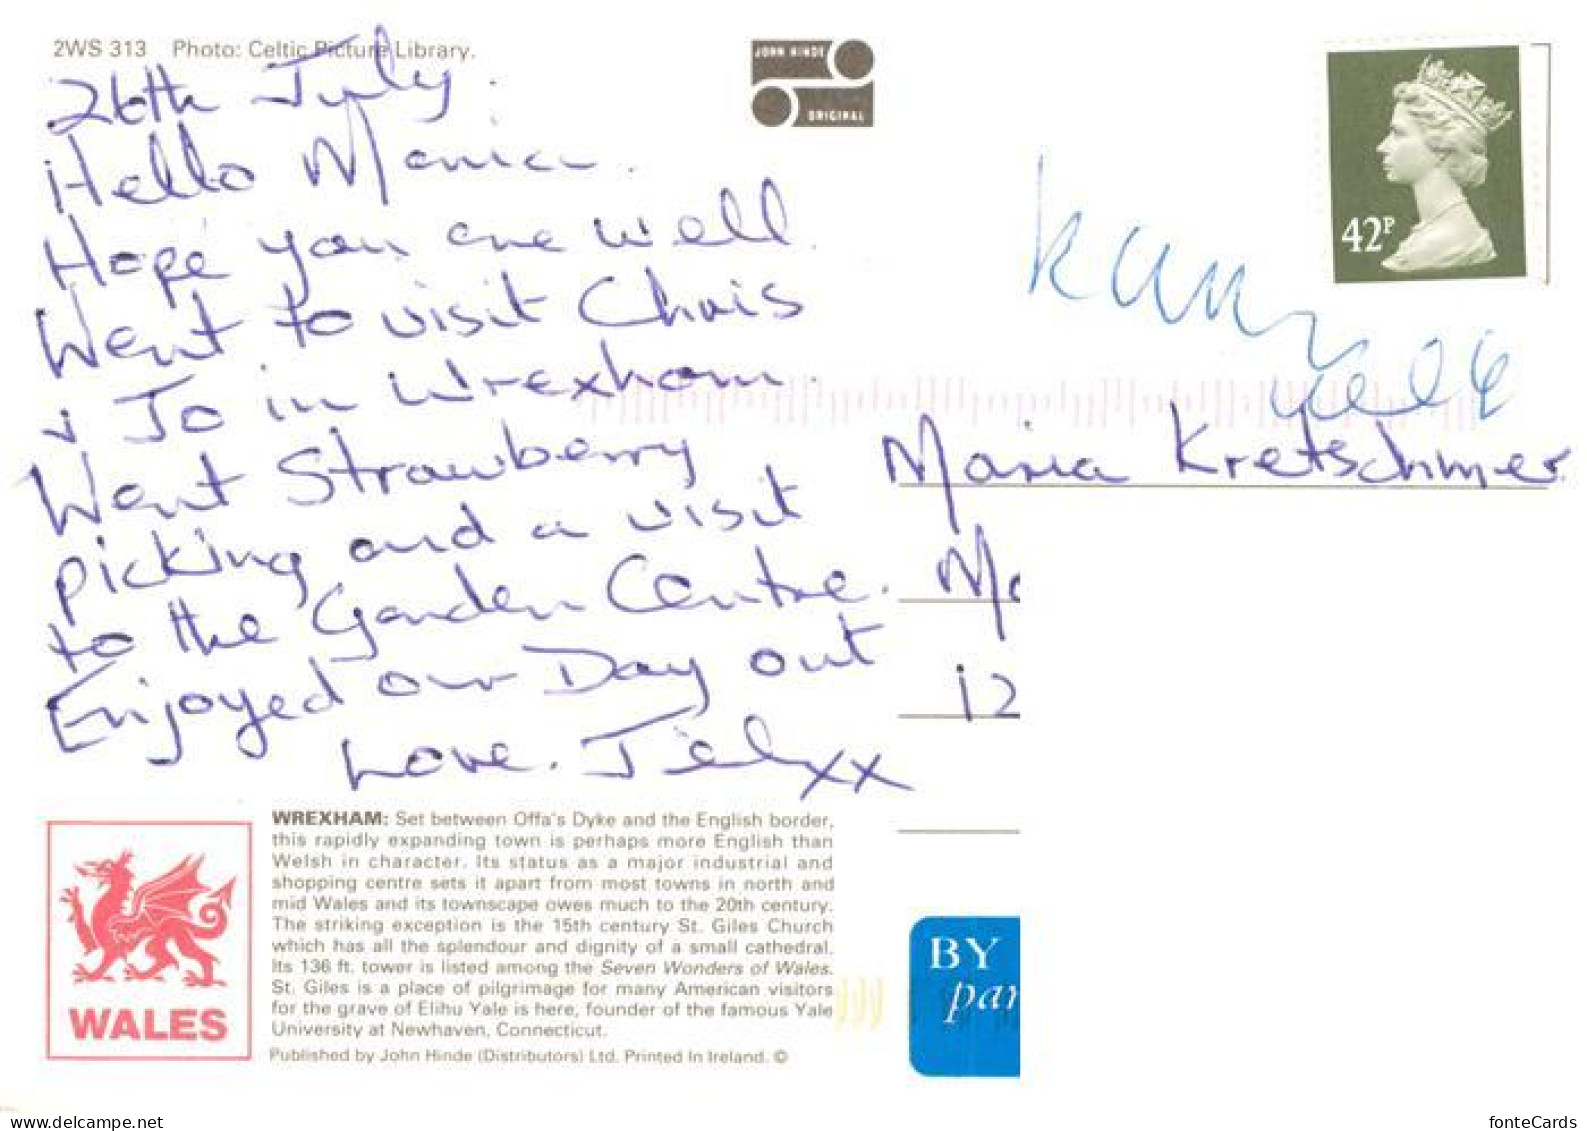 2WS 313 Photo: Celtic Picture Library.
JOHN HINDE
ORIGINAL
42P
26th July.
Hello Maria.
Hope you are well.
Went to visit Chris
+ Jo in Wrexham.
Went Strawberry
picking and a visit
to the Garden Centre.
Enjoyed our Day out
Love.
xx
Maria Kretschmer
12
WREXHAM: Set between Offa's Dyke and the English border,
this rapidly expanding town is perhaps more English than
Welsh in character. Its status as a major industrial and
shopping centre sets it apart from most towns in north and
mid Wales and its townscape owes much to the 20th century.
The striking exception is the 15th century St. Giles Church
which has all the splendour and dignity of a small cathedral.
Its 136 ft. tower is listed among the Seven Wonders of Wales.
St. Giles is a place of pilgrimage for many American visitors
for the grave of Elihu Yale is here, founder of the famous Yale
University at Newhaven, Connecticut.
Published by John Hinde (Distributors) Ltd. Printed In Ireland. ©
WALES
BY
par
www.delcampe.net
fonteCards